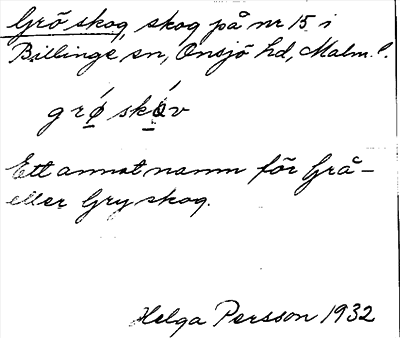 Grö skog, skog på nr 15 i
Billinge sn, Onsjö hd, Malm. l.
grǿ skóv
Ett annat namn för Grå-
eller Gryskog.
Helga Persson 1932